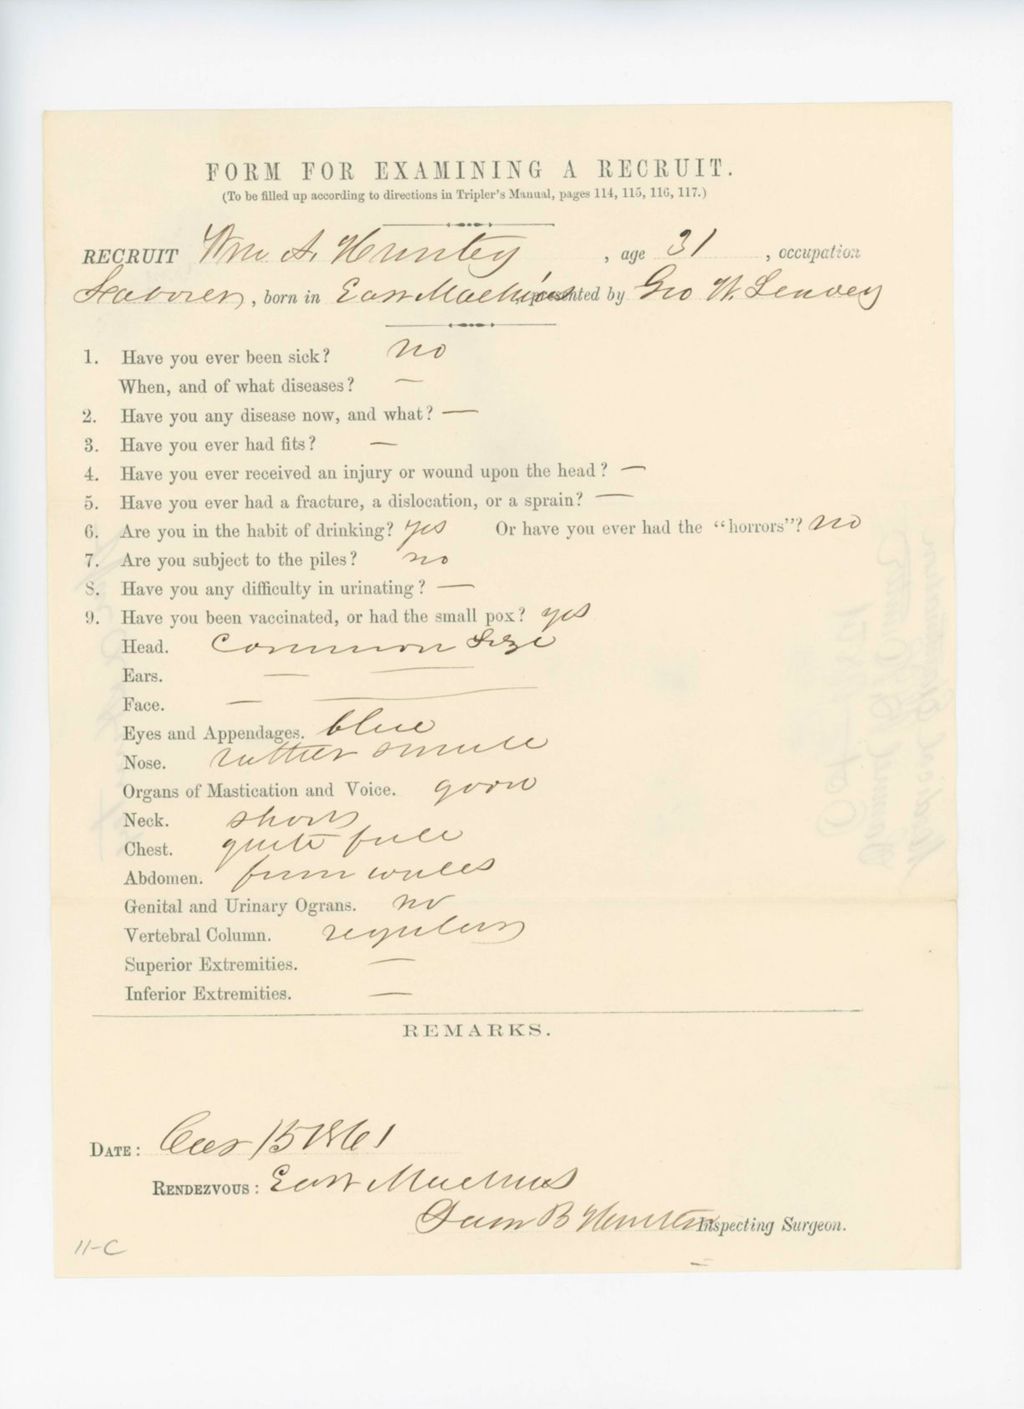 FORM FOR EXAMINING A RECRUIT.
(To be filled up according to directions in Tripler's Manual, pages 114, 115, 116, 117.)
RECRUIT Wm A. Huntey, age 31, occupation
Laborer, born in East Machias, presented by Geo W.
1. Have you ever been sick? no
When, and of what diseases? —
2. Have you any disease now, and what? —
3. Have you ever had fits? —
4. Have you ever received an injury or wound upon the head? —
5. Have you ever had a fracture, a dislocation, or a sprain? —
6. Are you in the habit of drinking? yes Or have you ever had the "horrors"? no
7. Are you subject to the piles? no
8. Have you any difficulty in urinating? —
9. Have you been vaccinated, or had the small pox? yes
Head. Common Size
Ears. — —
Face. — —
Eyes and Appendages. blue
Nose. rather small
Organs of Mastication and Voice. good
Neck. short
Chest. quite full
Abdomen. firm walls
Genital and Urinary Ograns. no
Vertebral Column. regular
Superior Extremities. —
Inferior Extremities. —
REMARKS.
DATE: Oct 15 1861
RENDEZVOUS: East Machias
Sam B Hunter Inspecting Surgeon.
11-C